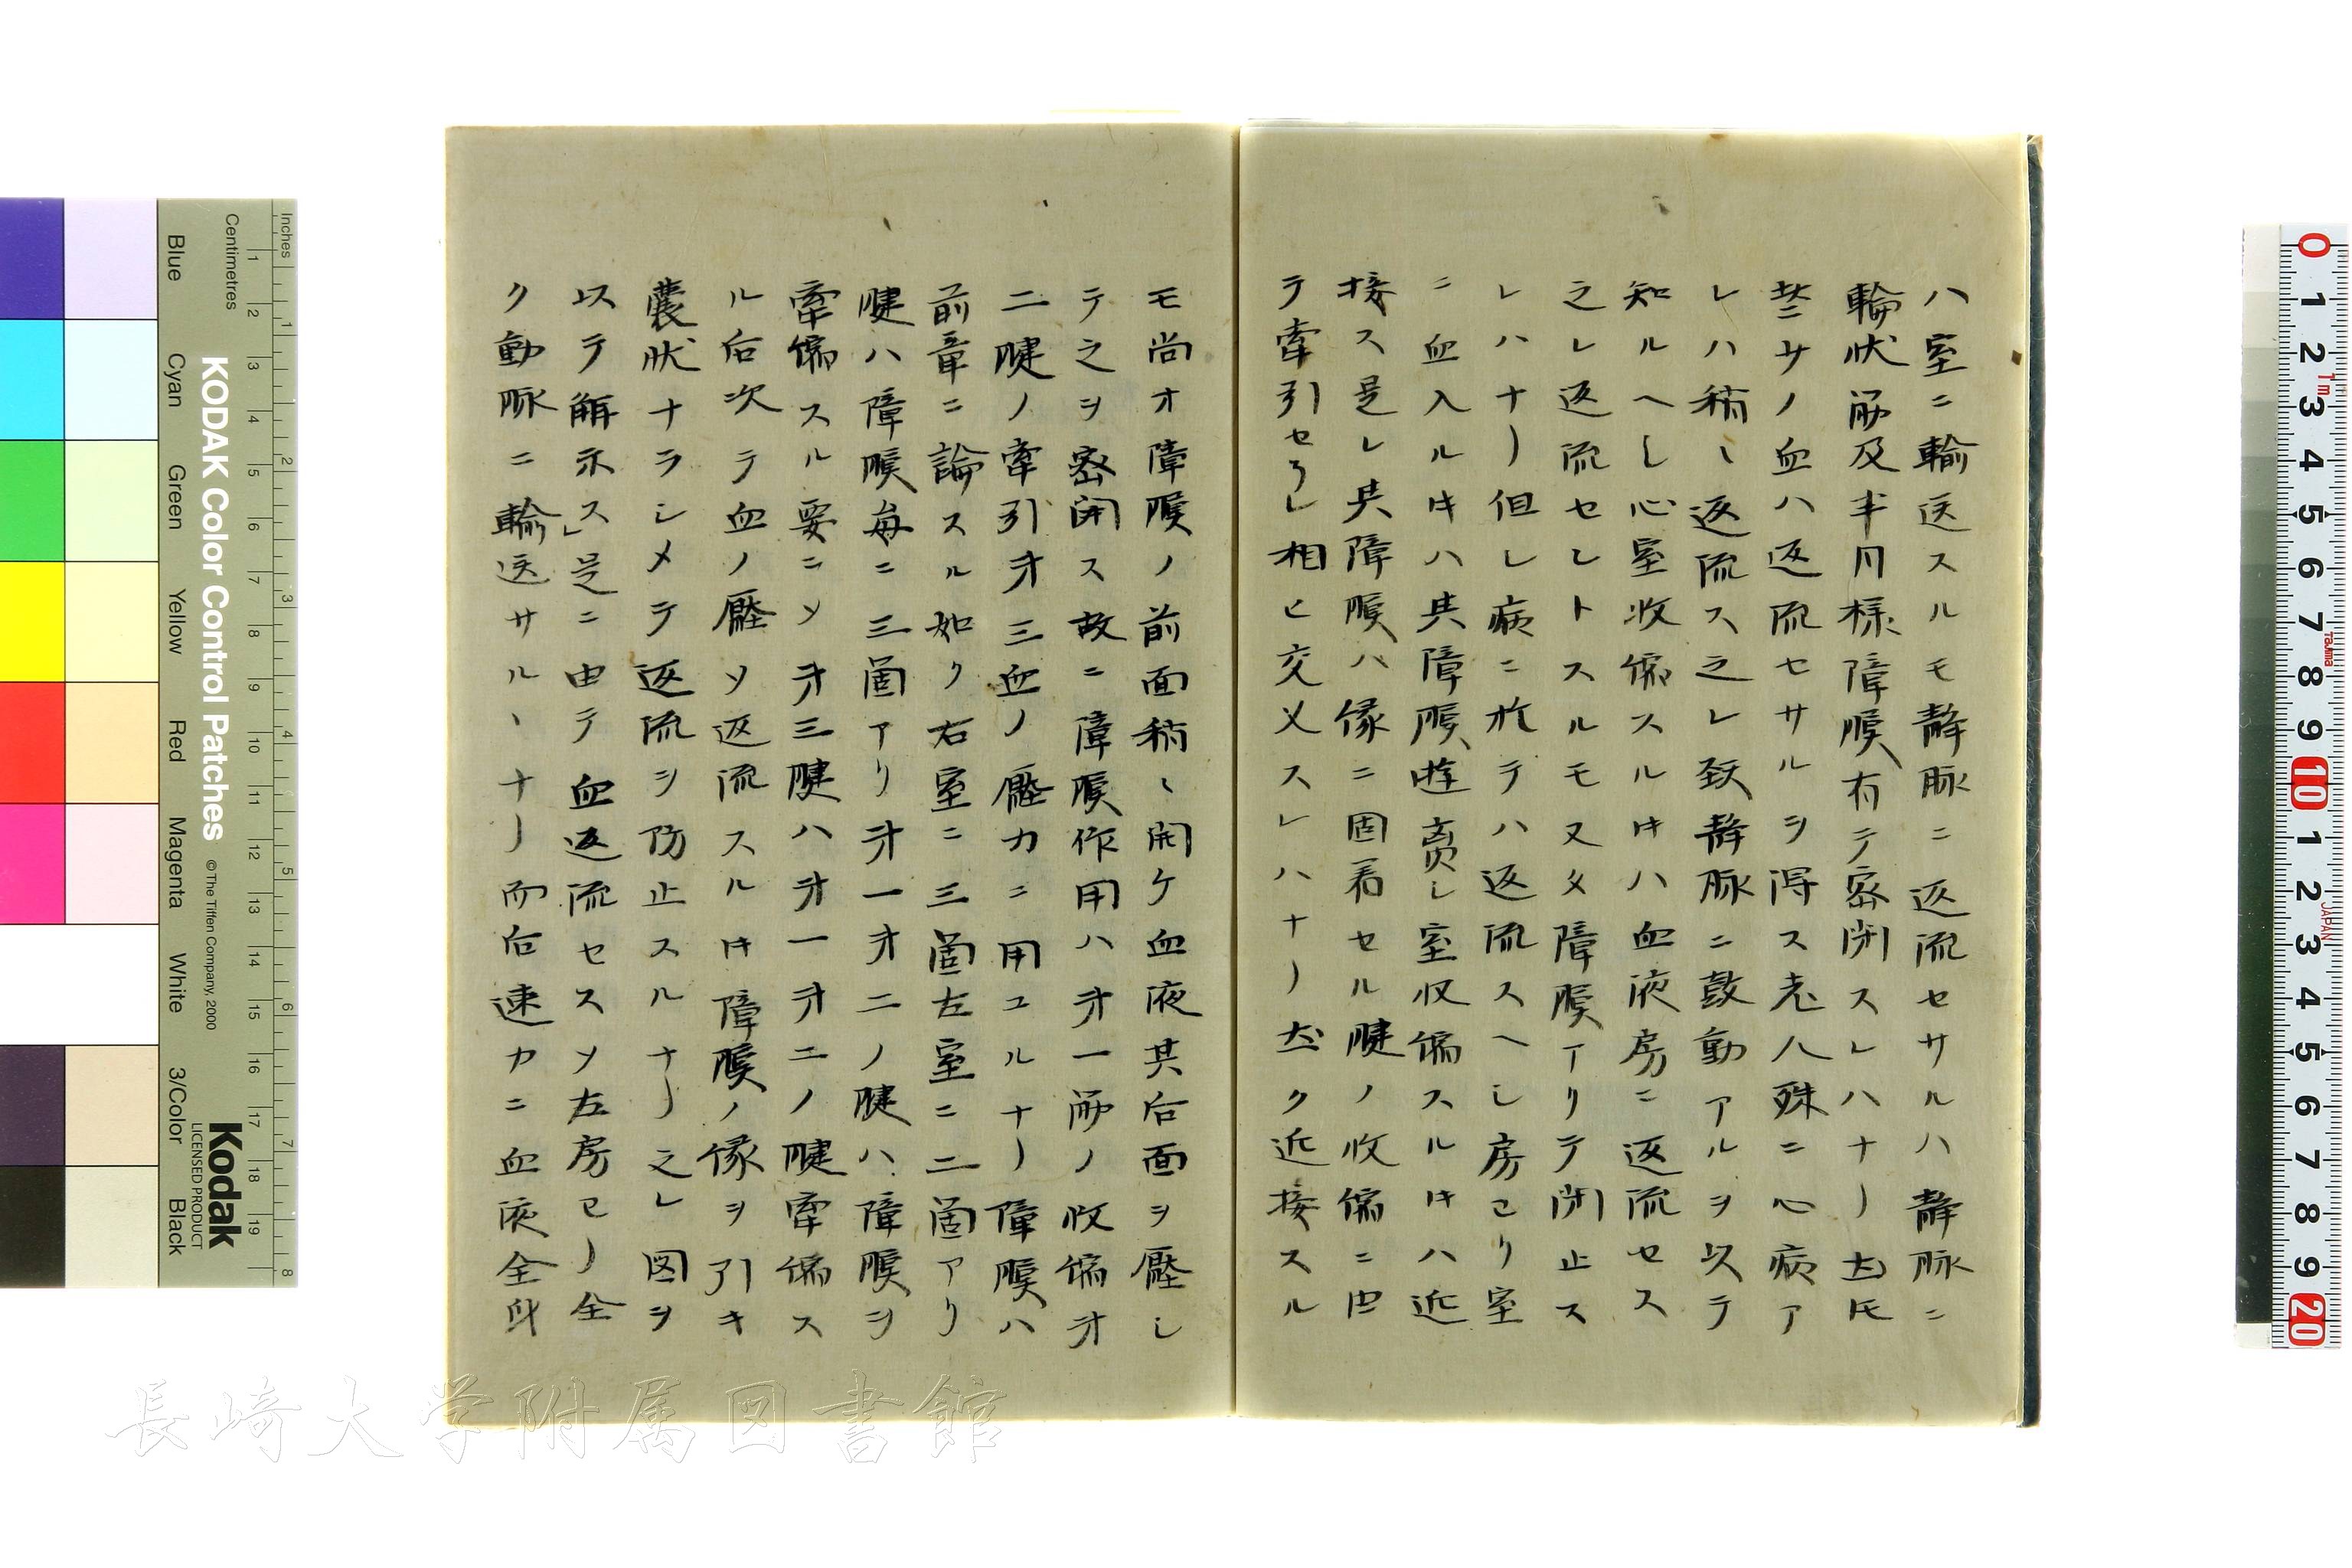 ハ室ニ輸送スルモ静脈ニ返流セサルハ静脈ニ
輪状筋及半月様障膜有テ密閉スレハナリ
サノ血ハ返流セサルヲ得ス老人殊ニ心病ア
レハ稍〻返流ス之レ頚静脈ニ鼓動アルヲ以テ
知ルヘし心室收偏スルキハ血液房ニ返流セス
之レ返流セレトスルモ又タ障膜アリテ閉止ス
レハナリ但し病ニ於テハ返流スヘし房ヨリ室
ニ血入ルキハ其障膜 し室收偏スルキハ近
接ス是レ其障膜ハ縁ニ固着セル腱ノ收偏ニ由
テ牽引セラレ相ヒ交叉スレハナリ 近接スル
モ尚オ障膜ノ前面稍〻開ケ血液其后面ヲ壓し
テ之ヲ密閉ス故ニ障膜作用ハ才一筋ノ收偏才
二腱ノ牽引才三血ノ壓力ニ用ユルナリ障膜ハ
前章ニ論スル如ク右室ニ三箇左室ニ二箇アリ
腱ハ障膜毎ニ三箇アリ才一才二ノ腱ハ障膜ヲ
牽偏スル要ニソ才三腱ハ才一才二ノ腱牽偏ス
ル后次テ血ノ壓ソ返流スルキ障膜ノ縁ヲ引キ
嚢状ナラシメテ返流ヲ防止スルナリ之レ図ヲ
以テ解示ス」是ニ由テ血返流セスソ左房ヨリ全
ク動脈ニ輸送サルヽナリ而后速カニ血液全身
KODAK Color Control Patches
© The Tiffen Company, 2000
Kodak
LICENSED PRODUCT
Inches
Centimetres
Blue
Cyan
Green
Yellow
Red
Magenta
White
3/Color
Black
長崎大学附属図書館